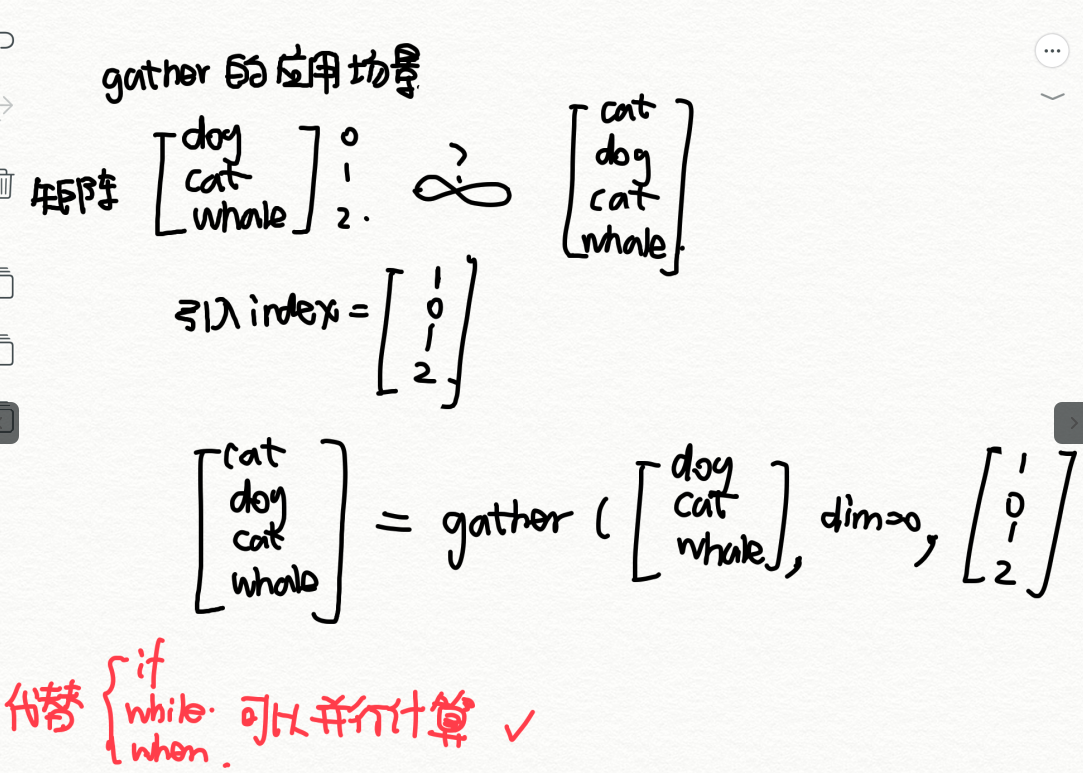 gather 的应用场景
矩阵 [dog cat whale] 0 1 2. ? [cat dog cat whale.]
引入 index = [1 0 1 2]
[cat dog cat whale] = gather ( [dog cat whale], dim=0, [1 0 1 2]
代替 { if while. when. 可以并行计算 ✓